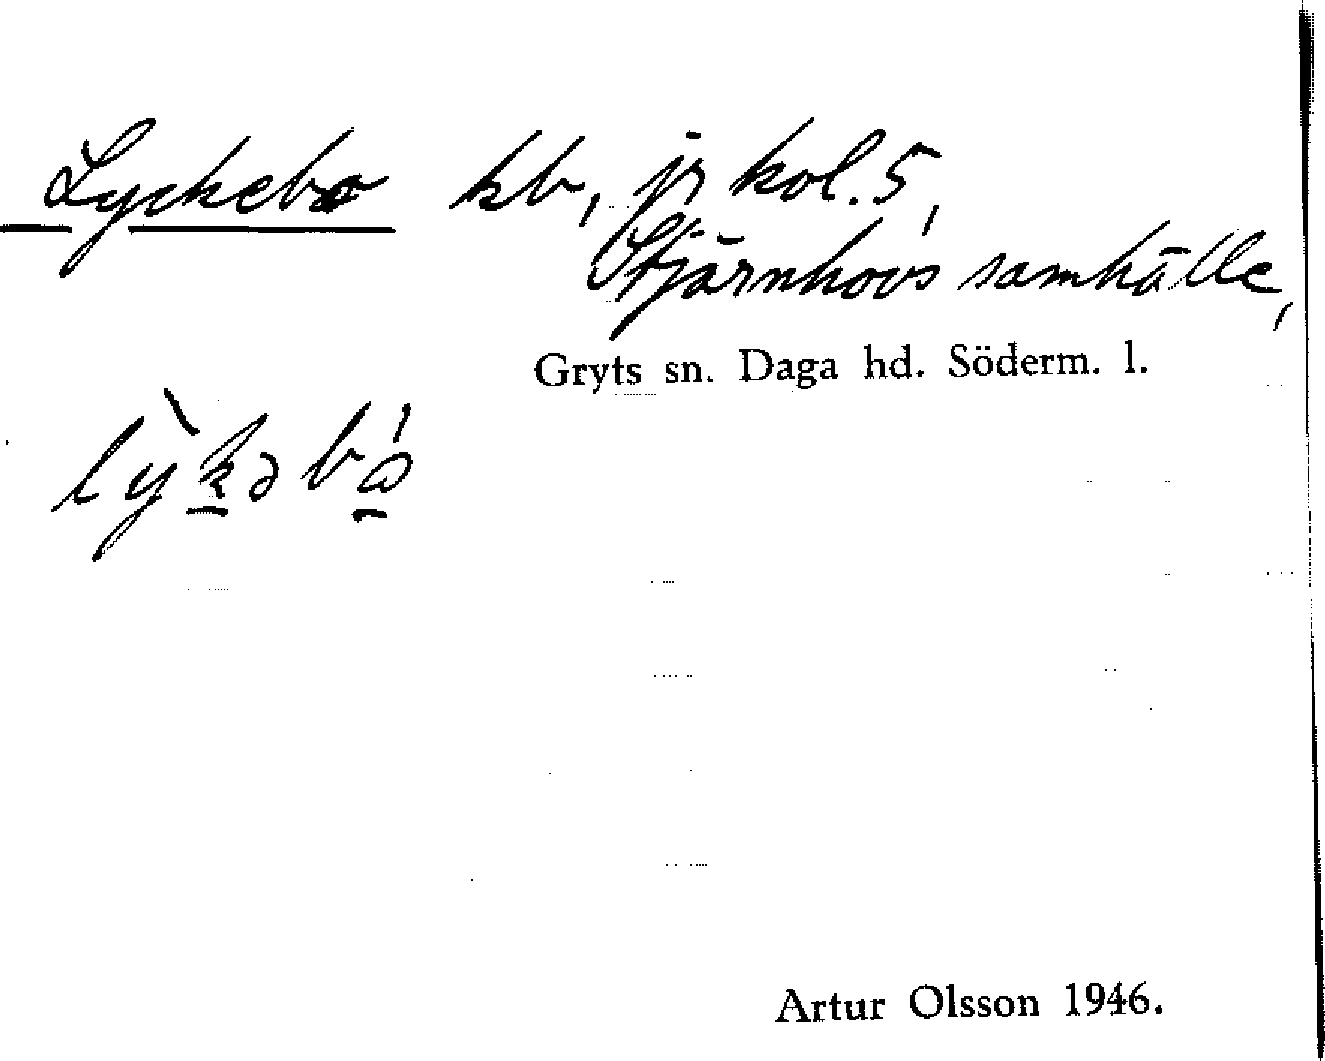 Lyckebo kb, jr kol. 5,
Stjärnhovs samhälle,
Gryts sn. Daga hd. Söderm. l.
lỳkəbó
Artur Olsson 1946.